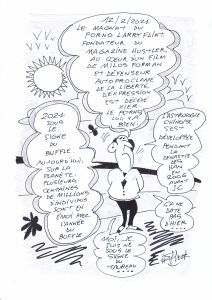 12/2/2021
LE MAGNAT DU
PORNO LARRY FLINT,
FONDATEUR DU
MAGAZINE HUSTLER
AU CŒUR D'UN FILM
DE MILOS FORMAN
ET DÉFENSEUR
AUTOPROCLAMÉ
DE LA LIBERTÉ
D'EXPRESSION
EST DÉCÉDÉ
HIER. LE
PORNO,
LUI, VA
BIEN!
2021
SOUS
LE
SIGNE
DU
BUFFLE.
AUJOURD'HUI,
SUR LA
PLANÈTE
PLUSIEURS
CENTAINES
DE MILLIONS
D'INDIVIDUS
SONT EN
ÉMOI AVEC
L'ANNÉE
DU
BUFFLE
L'ASTROLOGIE
CHINOISE
S'EST
DÉVELOPPÉE
PENDANT
LA
DYNASTIE
DES
HAN
EN
AV
JC
ÇA NE
DATE
PAS
D'HIER
MOI, JE
SUIS NÉ
SOUS LE
SIGNE
DU
TAUREAU